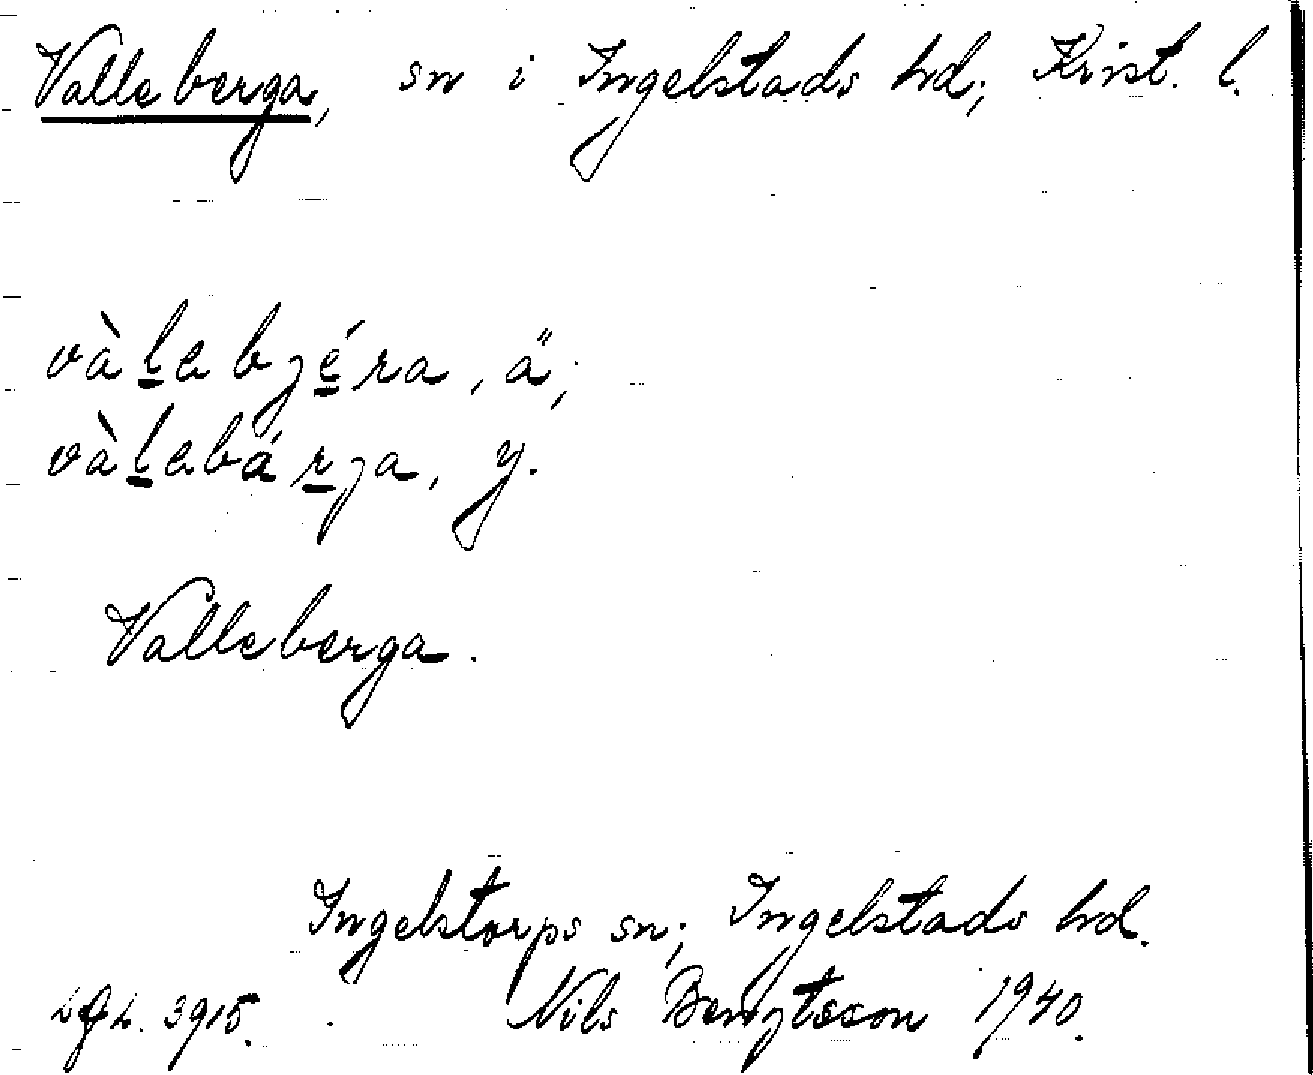 Valleberga, sn i Ingelstads hd; Krist. l.
vàl̲abjé̲ra, ä;
vàl̲abár̲ja, y.
Valleberga.
Ingelstorps sn; Ingelstads hd.
3915. Nils Bengtsson 1940.